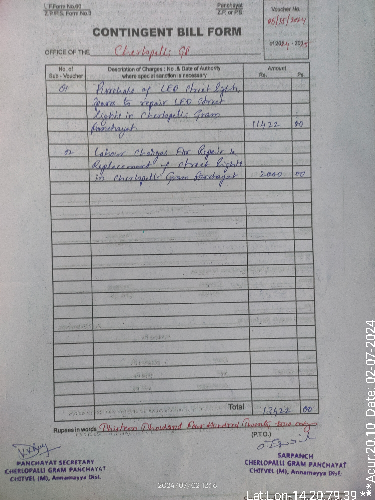 L.F.Form No.60
Z.P.P.S. Form No.3
Panchayat
Z.P. or P.S.
Voucher No.
CONTINGENT BILL FORM
OFFICE OF THE Cherlopalli GP
No. of Sub - Voucher
Description of Charges : No. & Date of Authority where special sanction is necessary
Amount
Rs. Ps.
01 Purchase of LED Street lights,
to repair LED Street
lights in Cherlopalli Gram
Panchayat 11422 00
02 Labour Charges For Repair &
Replacement of Street lights
in Cherlopalli Gram Panchayat 2000 00
Total 13422 00
Rupees in words Thirteen Thousand Four Hundred Twenty two only
(P.T.O.)
PANCHAYAT SECRETARY
CHERLOPALLI GRAM PANCHAYAT
CHITVEL (M), Annamayya Dist.
SARPANCH
CHERLOPALLI GRAM PANCHAYAT
CHITVEL (M), Annamayya Dist.
Lat Lon-14.20 79.39
***Acur 20.10 Date 02-07-2024